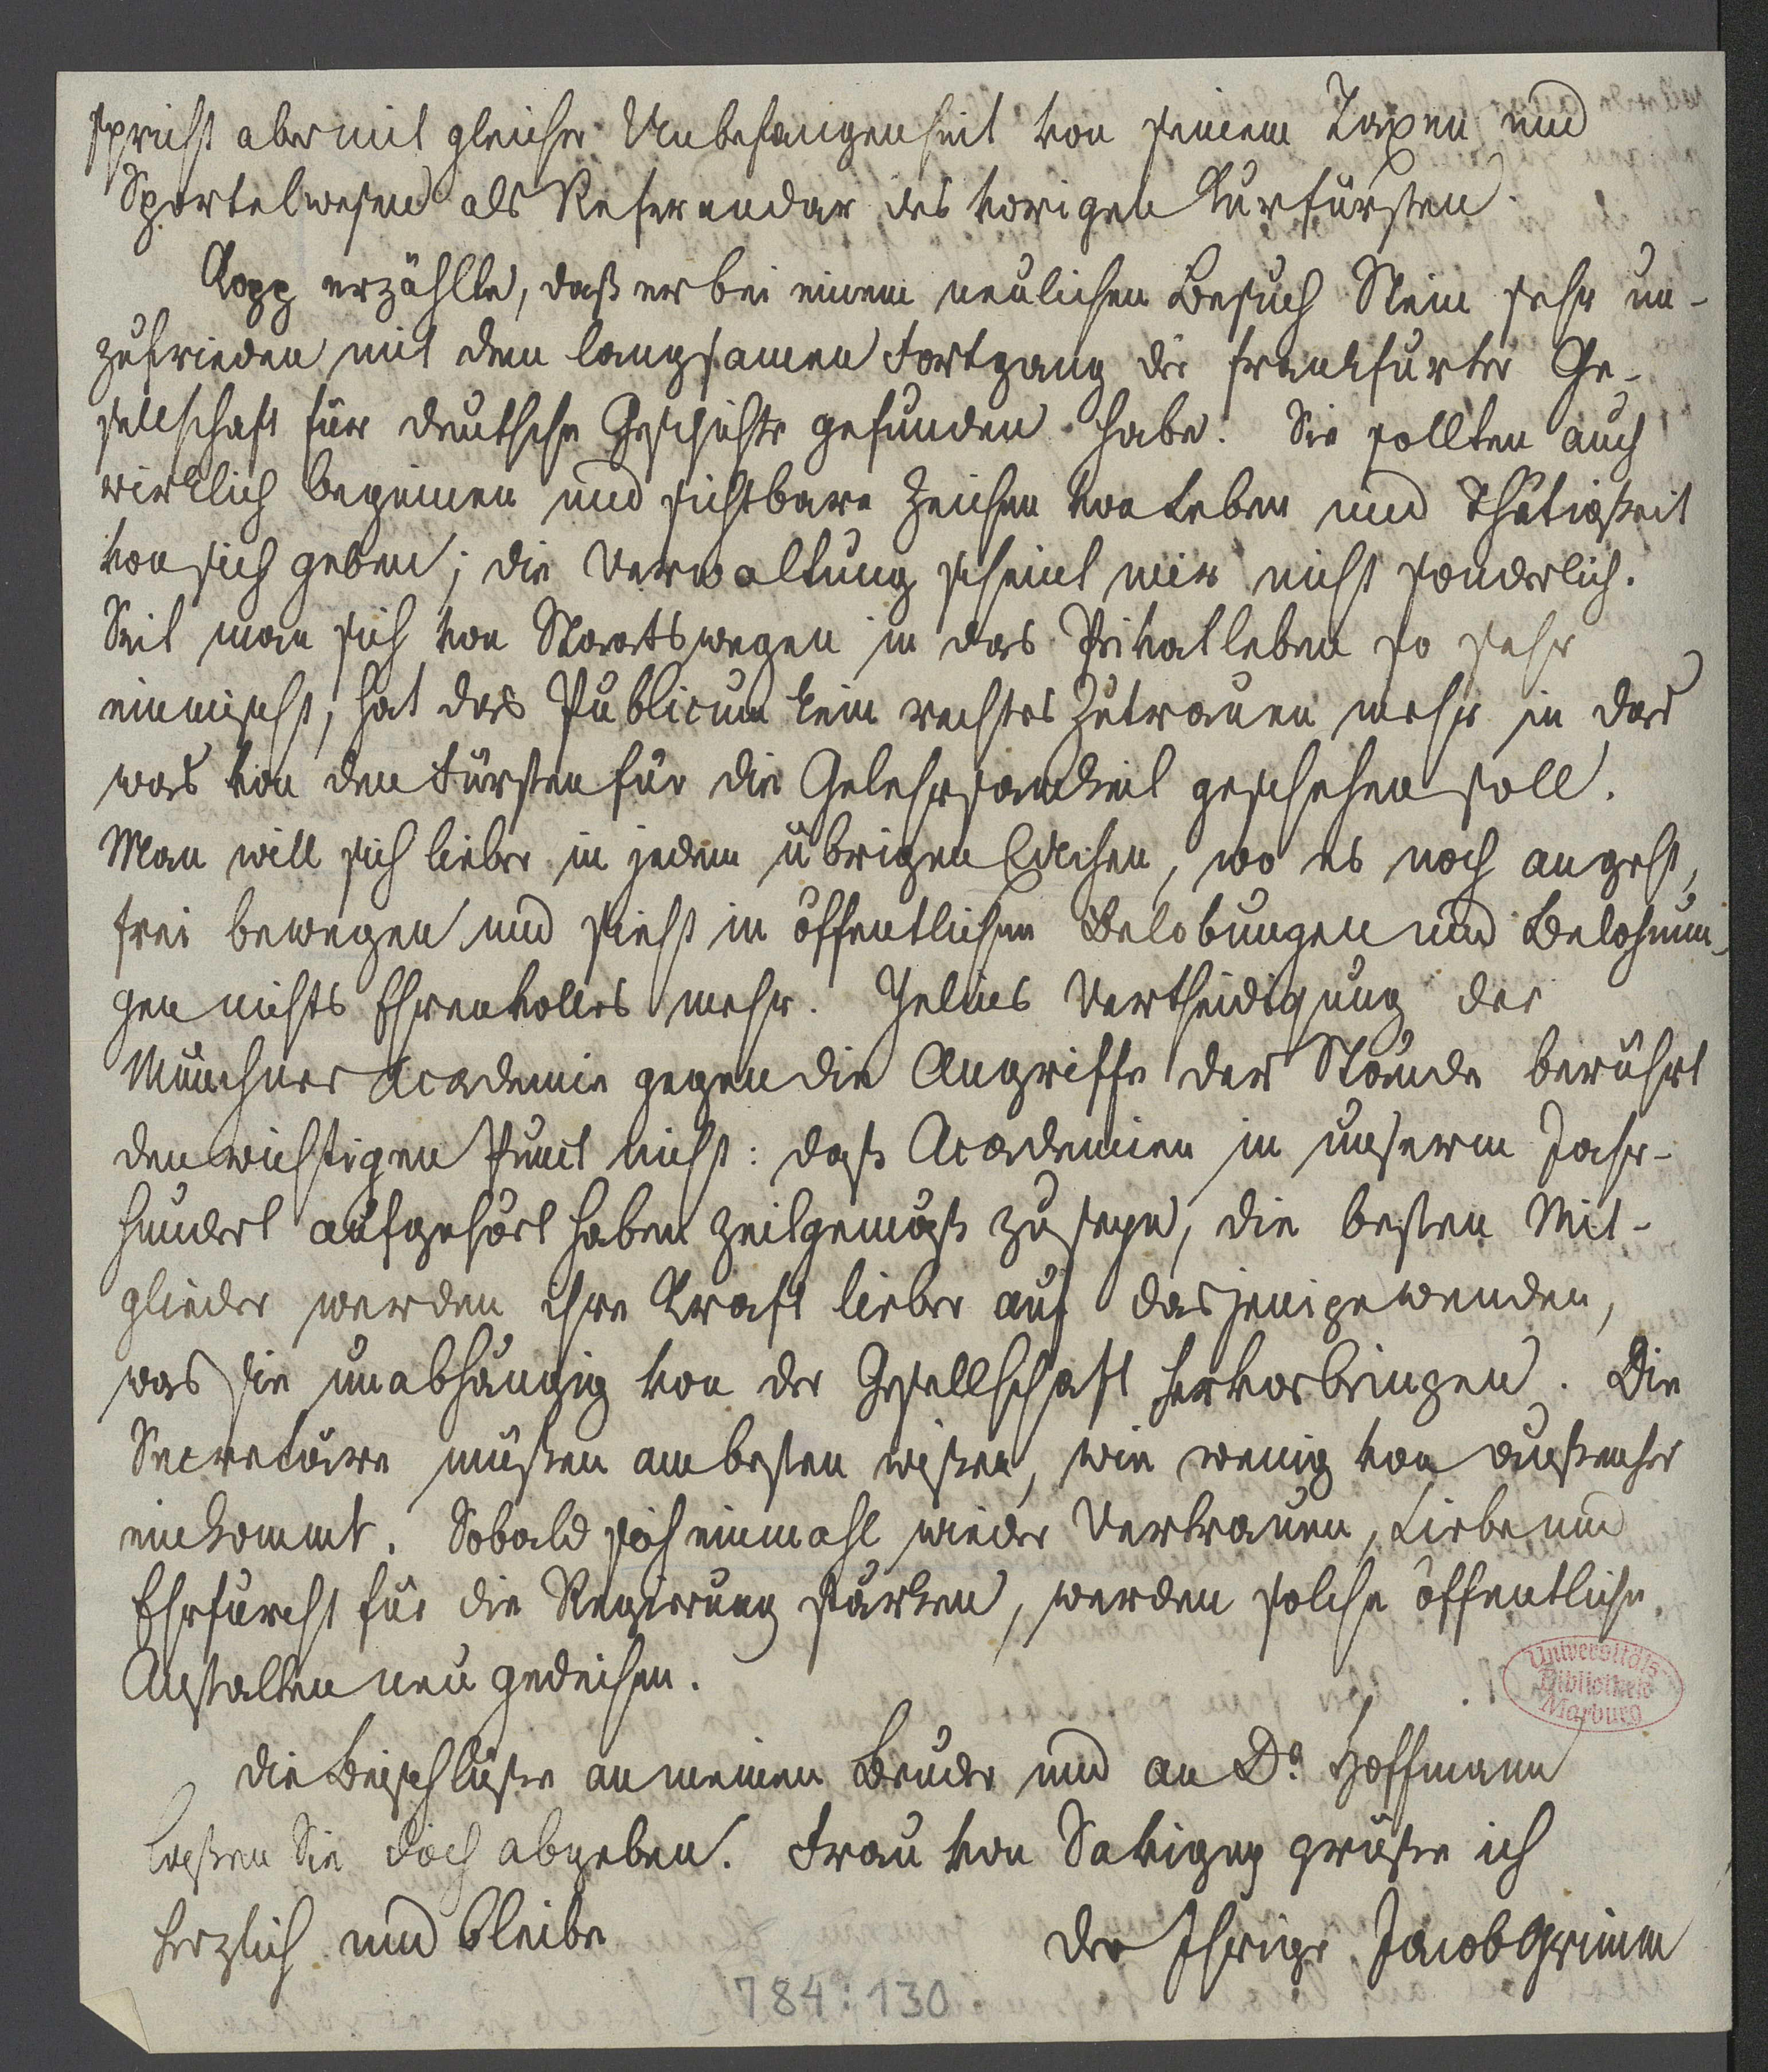 spricht aber mit gleicher Unbefangenheit von seinem Taxen und
Sportelwesen als Referendar des vorigen Kurfürsten.
Kopp erzählte, daß er bei einem neulichen Besuch Stein sehr un-
zufrieden mit dem langsamen Fortgang der frankfurter Ge-
sellschaft für deutsche Geschichte gefunden habe. Sie sollten auch
wirklich beginnen und sichtbare Zeichen von Leben und Thätigkeit
von sich geben; die Verwaltung scheint mir nicht sonderlich.
Seit man sich von Staatswegen in das Privatleben so sehr
einmischt, hat das Publicum kein rechtes Zutrauen mehr in das
was von den Fürsten für die Gelehrsamkeit geschehen soll.
Man will sich lieber in jedem übrigen Eckchen, wo es noch angeht,
frei bewegen und sieht in öffentlichen Belobungen und Belohnun-
gen nichts Ehrenvolles mehr. Jelins Vertheidigung der
Münchner Academie gegen die Angriffe der Stände berührt
den wichtigen Punct nicht: daß Academien in unserm Jahr-
hundert aufgehört haben zeitgemäß zu seyn, die besten Mit-
glieder werden ihre Kraft lieber auf dasjenige wenden,
was sie unabhängig von der Gesellschaft hervorbringen. Die
Secretäre müßen am besten wißen, wie wenig von außenher
einkommt. Sobald sich einmahl wieder Vertrauen, Liebe und
Ehrfurcht für die Regierung stärken, werden solche öffentliche
Anstalten neu gedeihen.
Universitäts
Bibliothek
Marburg
die Beischlüße an meinen Bruder und an Dr. Hoffmann
laßen Sie doch abgeben. Frau von Savigny grüße ich
herzlich und bleibe der Ihrige Jacob Grimm
784:130